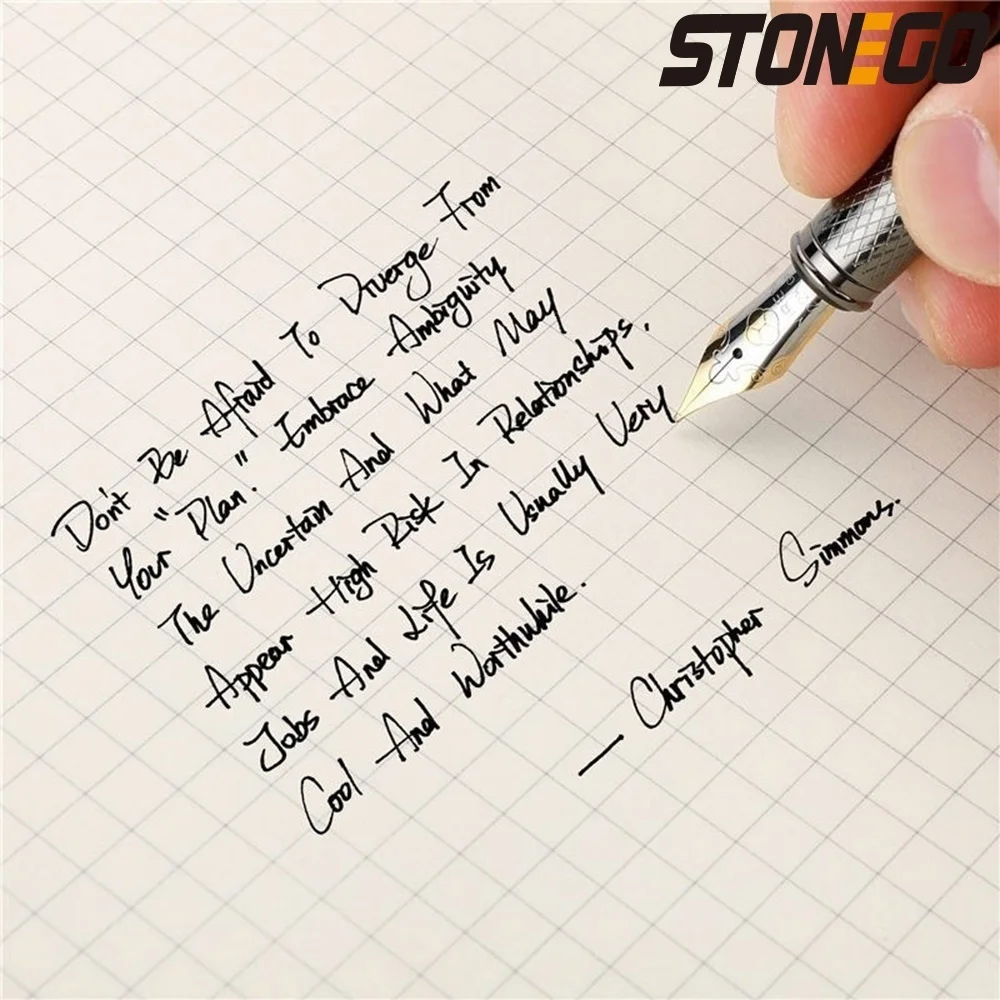 STONEGO
Don't Be Afraid To Diverge From
Your "Plan." Embrace Ambiguity
The Uncertain And What May
Appear High Risk In Relationships,
Jobs And Life Is Usually Very
Cool And Worthwhile.
— Christopher Simmons.